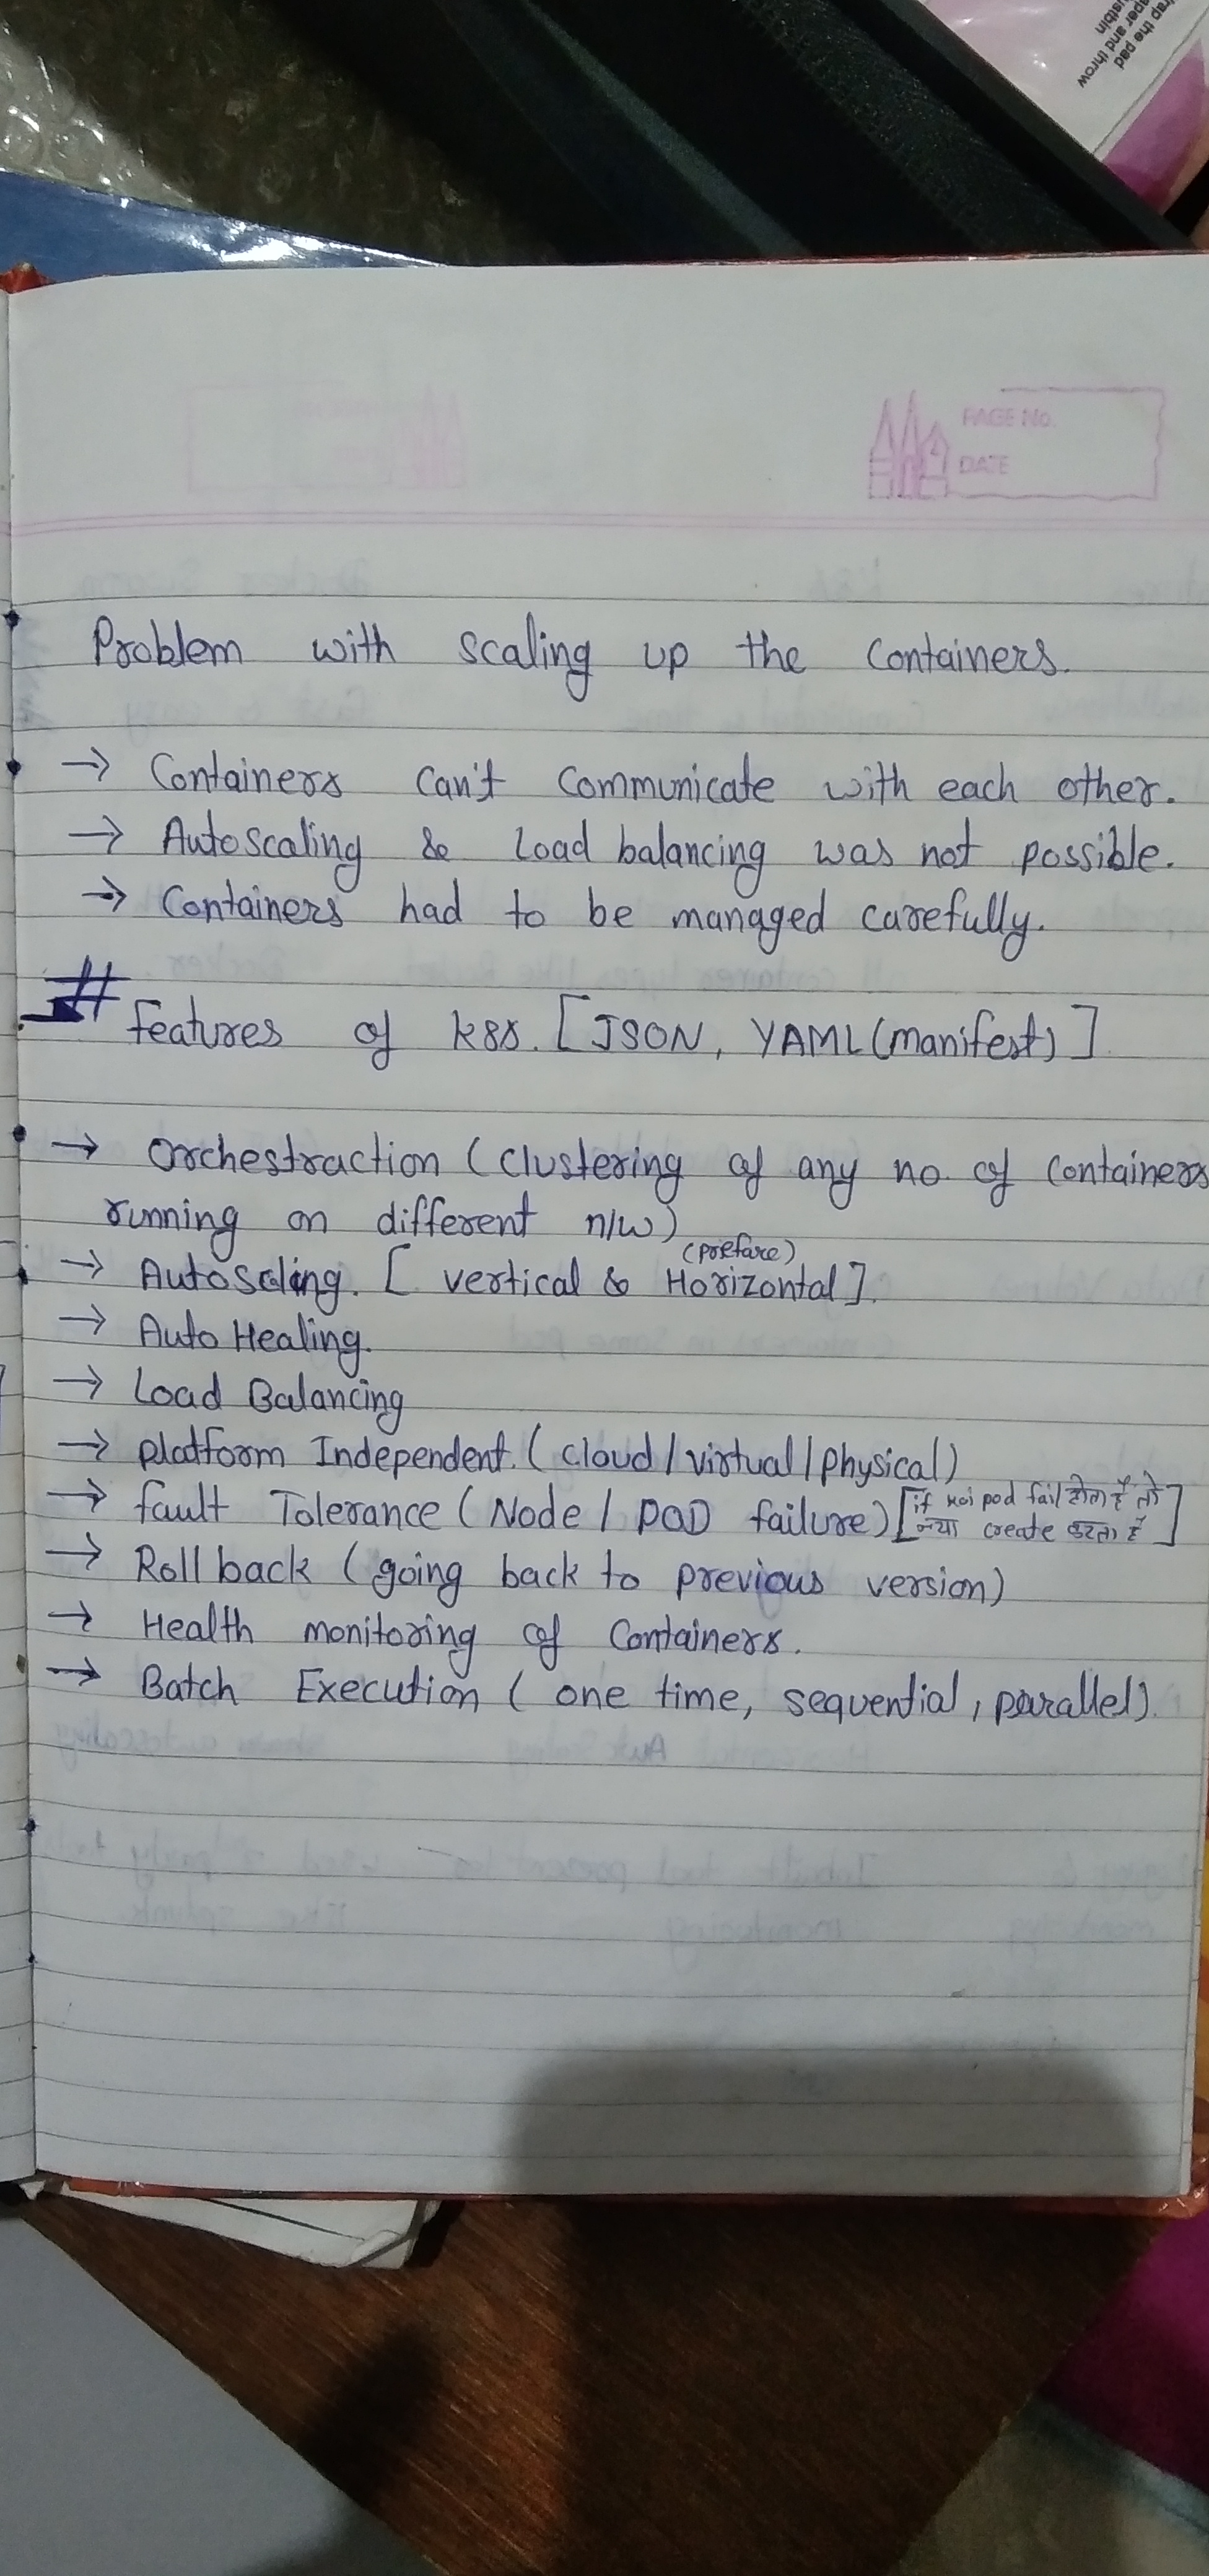 rap the pad
aper and throw
ustbin
PAGE No.
DATE
Problem with scaling up the Containers.
→ Containers can't communicate with each other.
→ Autoscaling & Load balancing was not possible.
→ Containers had to be managed carefully.
# features of k8s. [JSON, YAML (manifest)]
→ Orchestraction (clustering of any no. of containers
running on different n/w)
(prefare)
→ Autoscling. [vertical & Horizontal].
→ Auto Healing.
→ Load Balancing
→ platform Independent. (cloud / virtual / physical)
→ fault Tolerance (Node / POD failure) [if koi pod fail होता है तो
नया create करता है]
→ Roll back (going back to previous version)
→ Health monitoring of Containers.
→ Batch Execution (one time, sequential, parallel).